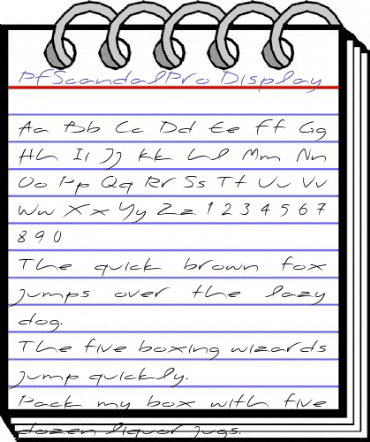 PFScandalPro Display
Aa Bb Cc Dd Ee Ff Gg
Hh Ii Jj Kk Ll Mm Nn
Oo Pp Qq Rr Ss Tt Uu Vv
Ww Xx Yy Zz 1 2 3 4 5 6 7
8 9 0
The quick brown fox
jumps over the lazy
dog.
The five boxing wizards
jump quickly.
Pack my box with five
dozen liquor jugs.